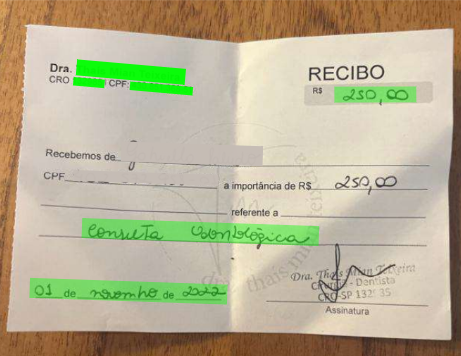 Dra.
CRO CPF:
RECIBO
R$ 250,00
Recebemos de
CPF a importância de R$ 250,00
referente a
Consulta Odontológica
01 de novembro de 2022
Dra. Thais Teixeira
Dentista
CRO-SP
Assinatura